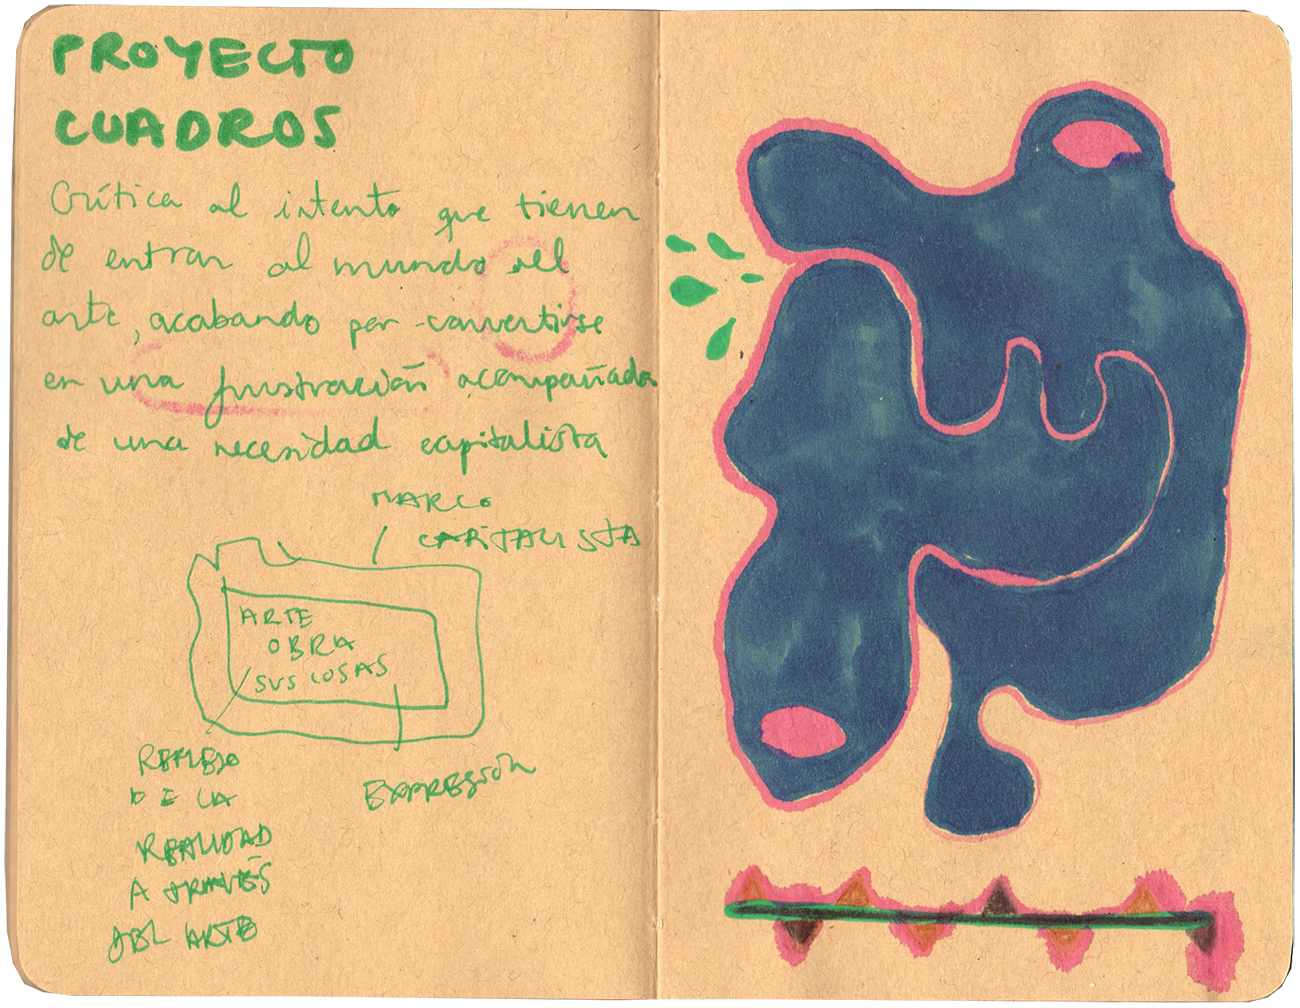 PROYECTO
CUADROS
Crítica al intento que tienen
de entrar al mundo del
arte, acabando por convertirse
en una frustración acompañada
de una necesidad capitalista
MARCO
CAPITALISTA
ARTE
OBRA
SUS COSAS
REFLEJO
DE LA
REALIDAD
A TRAVÉS
DEL ARTE
EXPRESIÓN